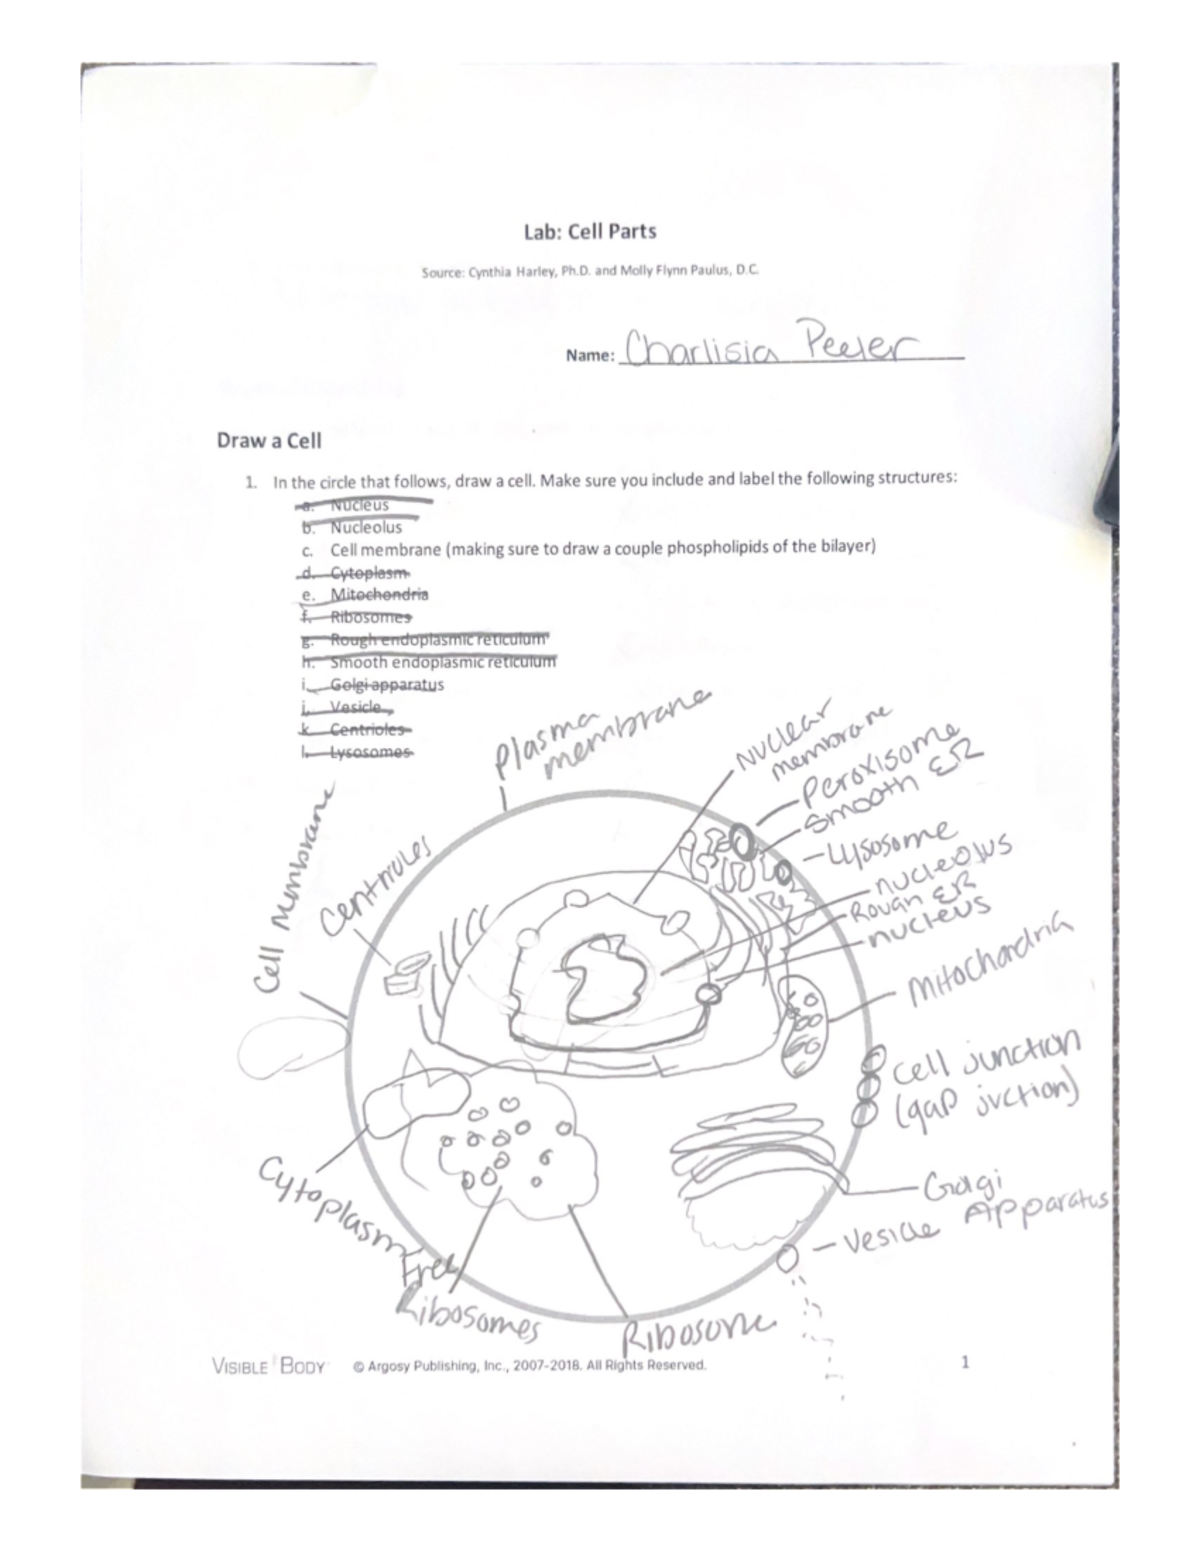 Lab: Cell Parts
Source: Cynthia Harley, Ph.D. and Molly Flynn Paulus, D.C.
Name: Charlisia Peeler
Draw a Cell
1. In the circle that follows, draw a cell. Make sure you include and label the following structures:
a. Nucleus
b. Nucleolus
c. Cell membrane (making sure to draw a couple phospholipids of the bilayer)
d. Cytoplasm
e. Mitochondria
f. Ribosomes
g. Rough endoplasmic reticulum
h. Smooth endoplasmic reticulum
i. Golgi apparatus
j. Vesicle
k. Centrioles
l. Lysosomes
Plasma
membrane
Nuclear
membrane
Peroxisome
Smooth ER
Lysosome
nucleolus
Rough ER
nucleus
Mitochondria
Cell Membrane
Centrioles
Cell junction
(gap juction)
Golgi
Apparatus
Vesicle
Cytoplasm
Free
Ribosomes
Ribosome
VISIBLE BODY © Argosy Publishing, Inc., 2007-2018. All Rights Reserved. 1